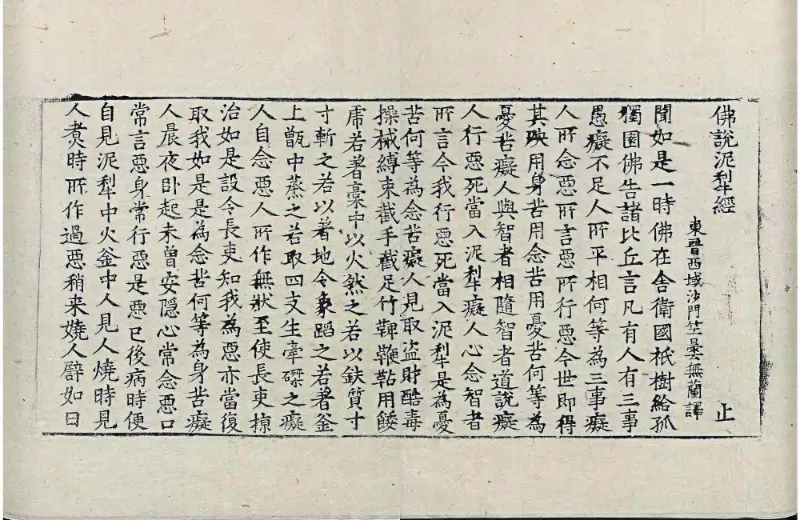 佛說泥犁經
止
東晉西域沙門竺曇無蘭譯
聞如是一時佛在舍衛國祇樹給孤
獨園佛告諸比丘言凡有人有三事
愚癡不足人所平相何等為三事癡
人所念惡所言惡所行惡今世即得
其殃用身苦用念苦用憂苦何等為
憂苦癡人與智者相隨智者道說癡
人行惡死當入泥犁癡人心念智者
所言今我行惡死當入泥犁是為憂
苦何等為念苦癡人見取盜財酷毒
操械縛束截手截足竹鞞鞭鞊用餧
席若著稾中以火然之若以鈇質寸
寸斬之若以著地令象蹈之若著釜
上甑中蒸之若取四支生牽磔之癡
人自念惡人所作無狀至使長吏掠
治如是設令長吏知我為惡亦當復
取我如是是為念苦何等為身苦癡
人晨夜卧起未曾安隱心常念惡口
常言惡身常行惡是惡已後病時便
自見泥犁中火釜中人見人燒時見
人煑時所作過惡稍来嬈人譬如日